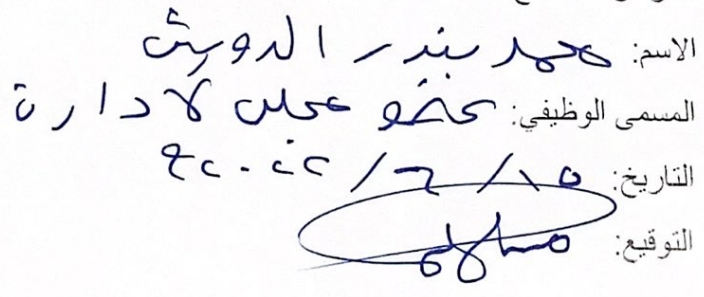 الاسم: محمد بندر الدويش
المسمى الوظيفي: عضو مجلس الادارة
التاريخ: ١٥/٦/٢٠٢٢م
التوقيع: